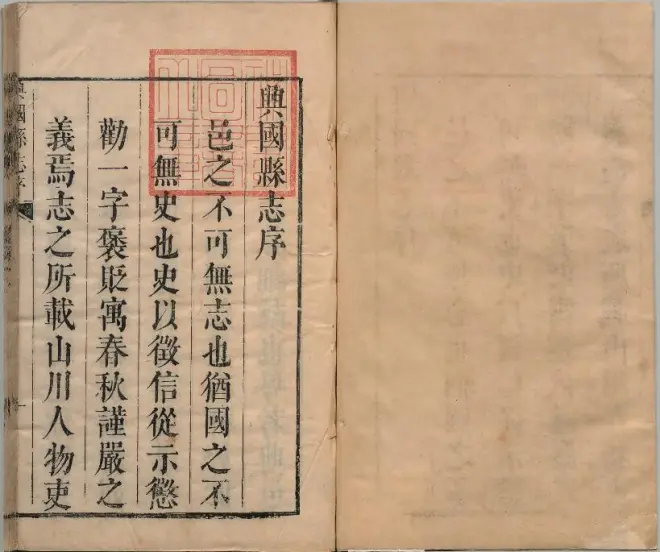 興國縣志序
邑之不可無志也猶國之不
可無史也史以徵信從示懲
勸一字褒貶寓春秋謹嚴之
義焉志之所載山川人物吏
興國縣志序